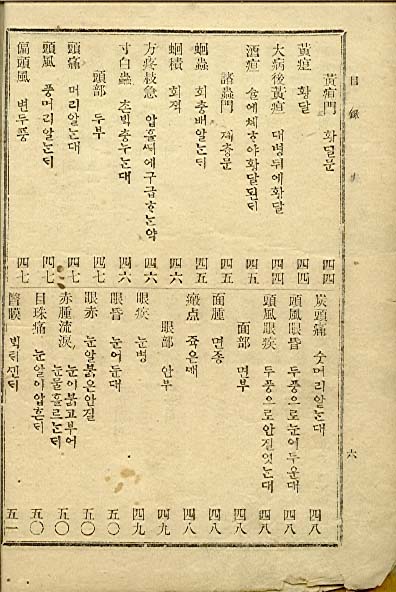 目錄
六
黃疸門 황달문 四四
黃疸 황달 四四
大病後黃疸 대병뒤에황달 四四
酒疸 술에체ᄒᆞ야황달된ᄃᆡ 四五
諸蟲門 제츙문 四五
蛔蟲 회츙배알는ᄃᆡ 四五
蛔積 회적 四六
方疼救急 압흘ᄯᅢ에구급ᄒᆞ는약 四六
寸白蟲 촌ᄇᆡᆨ츙누는대 四六
頭部 두부 四七
頭痛 머리알는대 四七
頭風 풍머리알는ᄃᆡ 四七
偏頭風 변두풍 四七
炭頭痛 숫머리알는대 四八
頭風眼昏 두풍으로눈어두운대 四八
頭風眼疾 두풍으로안질잇는대 四八
面部 면부 四八
面腫 면종 四八
瘢点 죽은ᄭᆡ 四八
眼部 안부 四九
眼疾 눈병 四九
眼昏 눈어둔대 五〇
眼赤 눈알붉은안질 五〇
赤腫流淚 눈이붉고부어눈물흘르는ᄃᆡ 五〇
目珠痛 눈알이압흔ᄃᆡ 五〇
瞖膜 ᄇᆡᆨ태ᄭᅵᆫᄃᆡ 五一